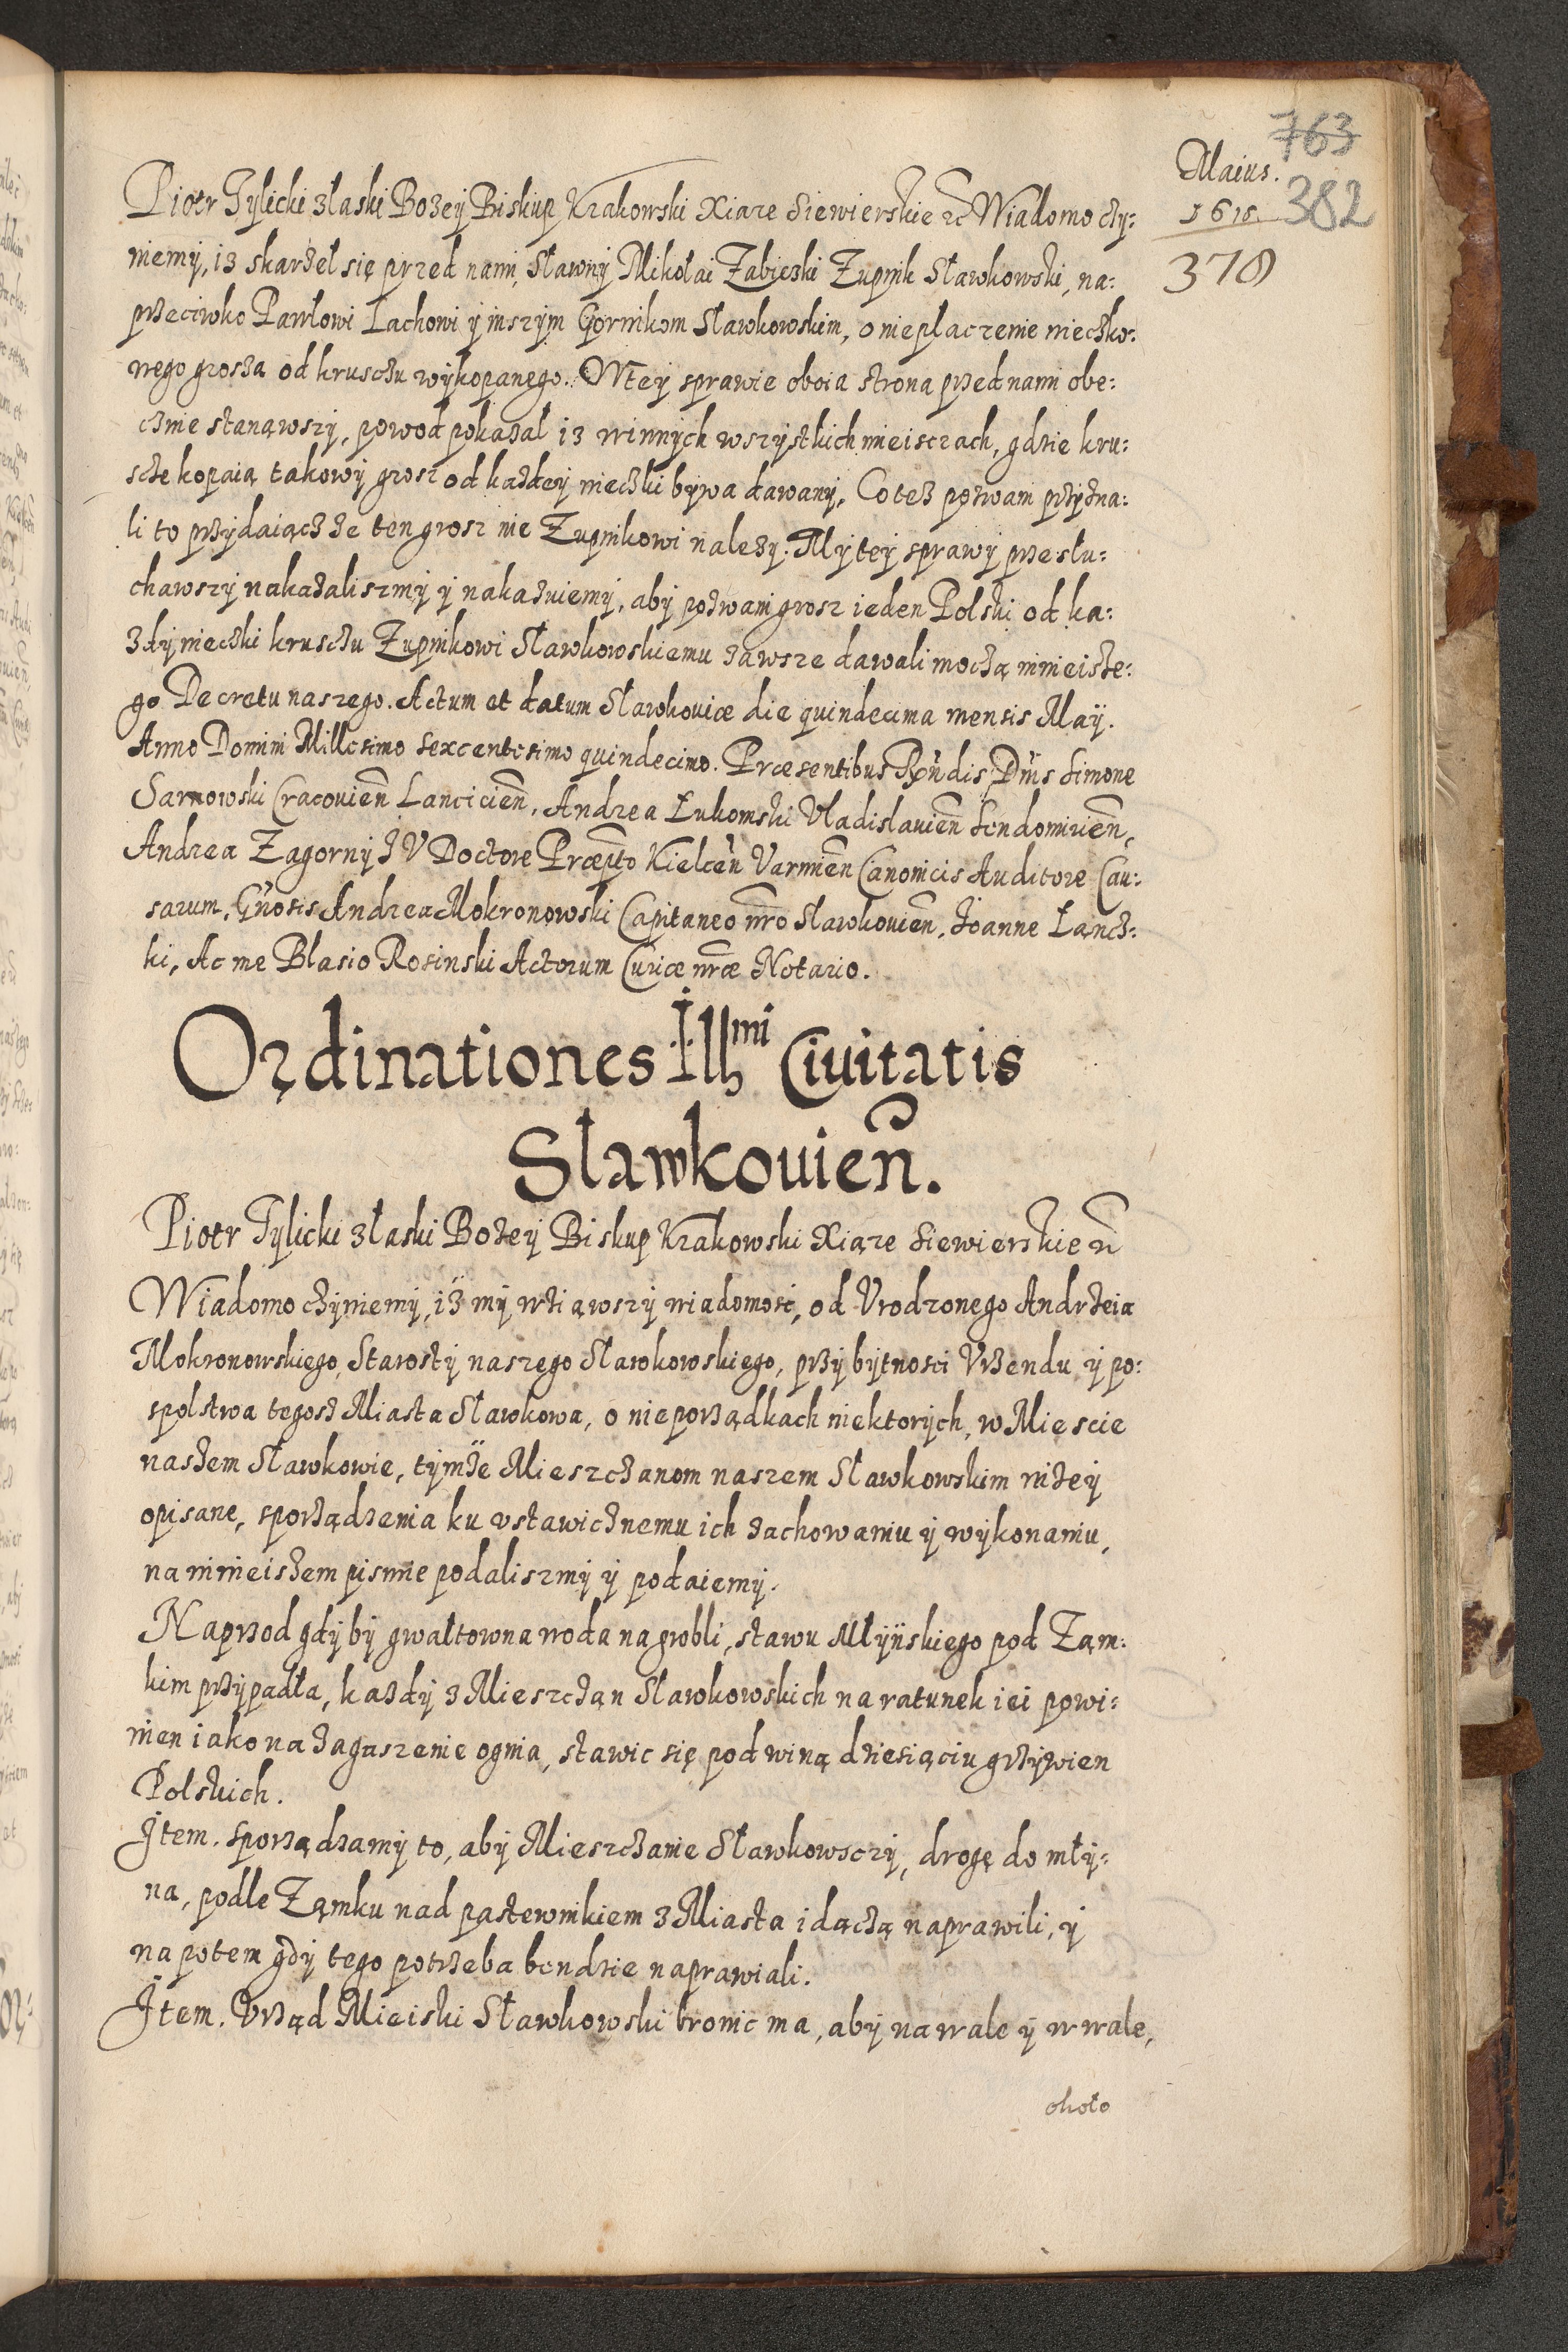 763
Maius.
1615.
382
378
Piotr Tylicki z łaski Bozey Biskup Krakowski Xiąze Siewierskie etc Wiadomo czy:
niemy, iz skarzeł się przed nami, Sławny Mikołai Zabiczki Zupnik Sławkowski, na:
przeciwko Pawłowi Lachowi y inszym Gornikom Sławkowskim, o niepłaczenie nieczko:
wego grosza od kruschu wykopanego. W tey sprawie oboia strona przed nami obe:
cznie stanąwszy, powod pokazał iz w innych wszystkich mieisczach, gdzie kru:
scze kopaią takowy grosz od kazdey nieczki bywa dawany, Co tez pozwani przyzna:
li to przydaiącz ze ten grosz nie Zupnikowi nalezy. My tey sprawy przesłu:
chawszy nakazaliszmy y nakazuiemy, aby pozwani grosz ieden Polski od ka:
zdy nieczki kruschu Zupnikowi Sławkowskiemu zawsze dawali moczą ninieisze:
go Decretu naszego. Actum et datum Slawkoviæ die quindecima mensis Maÿ.
Anno Domini Millesimo Sexcentesimo quindecimo. Præsentibus Rn̄dis Dn̄is Simone
Sarnowski Cracovien̄ Lancicien̄, Andrea Łukomski Vladislavien̄ Sendomirien̄,
Andrea Zagorny J V Doctore Præpto Kielcen̄ Varmien̄ Canonicis Auditore Cau:
sarum, Gn̄osis Andrea Mokronowski Capitaneo nr̄o Slawkovien̄, Joanne Łancz:
ki, Ac me Blasio Rosinski Actorum Curiæ nr̄æ Notario.
Ordinationes Illmi Civitatis
Slawkouien̄.
Piotr Tylicki z łaski Bozey Biskup Krakowski Xiąze Siewierskie etc
Wiadomo czyniemy, iz my wziąwszy wiadomość, od Vrodzonego Andrzeia
Mokronowskiego, Starosty naszego Sławkowskiego, przy bytnosci Vrzendu y po:
spolstwa tegosz Miasta Sławkowa, o nieporządkach niektorych, w Miescie
naszem Sławkowie, tymze Mieszczanom naszem Sławkowskim nizey
opisane, sporządzenia ku vstawicznemu ich zachowaniu y wykonaniu,
na ninieiszem pismie podaliszmy y podaiemy.
Naprzod gdy by gwałtowna woda na grobli, stawu Młyńskiego pod Zam:
kim przypadła, kazdy z Mieszczan Sławkowskich na ratunek iei powi:
nien iako na zagaszenie ognia, stawic się pod winą dziesiąciu grzywien
Polskich.
Item. Sporządzamy to, aby Mieszczanie Sławkowsczy, drogę do mły:
na, podle Zamku nad pastewnikiem z Miasta idączą naprawili, y
na potem gdy tego potrzeba bendzie naprawiali.
Item. Vrząd Mieiski Sławkowski bronic ma, aby na wale y w wale,
około